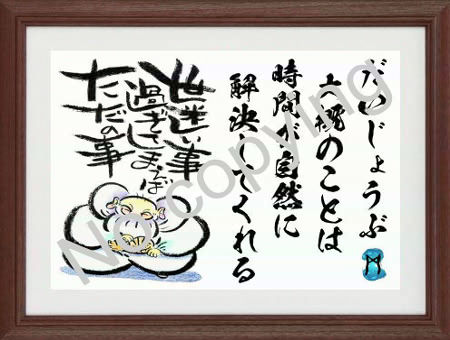 だいじょうぶ
大概のことは
時間が自然に
解決してくれる
世迷い事
過ぎてしまえば
ただの事
No copying